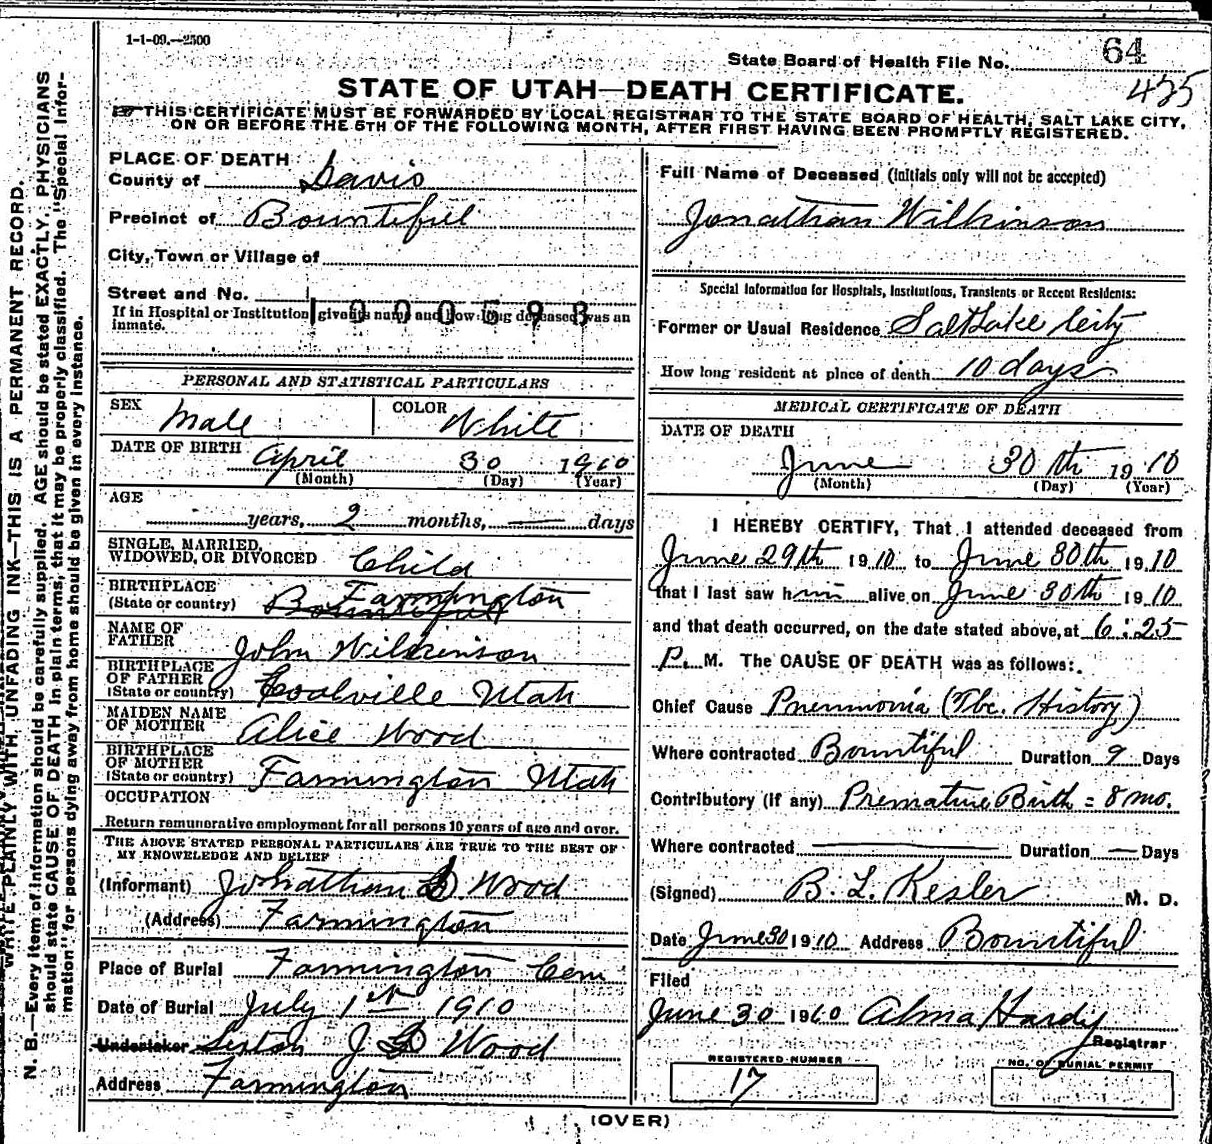 1-1-09.—2500
State Board of Health File No. 64
435
STATE OF UTAH—DEATH CERTIFICATE.
☞THIS CERTIFICATE MUST BE FORWARDED BY LOCAL REGISTRAR TO THE STATE BOARD OF HEALTH, SALT LAKE CITY,
ON OR BEFORE THE 5TH OF THE FOLLOWING MONTH, AFTER FIRST HAVING BEEN PROMPTLY REGISTERED.
WRITE PLAINLY WITH UNFADING INK—THIS IS A PERMANENT RECORD.
N. B.—Every item of information should be carefully supplied. AGE should be stated EXACTLY, PHYSICIANS
should state CAUSE OF DEATH in plain terms, that it may be properly classified. The "Special Infor-
mation" for persons dying away from home should be given in every instance.
PLACE OF DEATH
County of Davis
Precinct of Bountiful
City, Town or Village of
Street and No.
If in Hospital or Institution, give its name and how long deceased was an
inmate.
1900593
PERSONAL AND STATISTICAL PARTICULARS
SEX Male COLOR White
DATE OF BIRTH April 30 1910
(Month) (Day) (Year)
AGE
years, 2 months, — days
SINGLE, MARRIED,
WIDOWED, OR DIVORCED Child
BIRTHPLACE
(State or country) Bountiful Farmington
NAME OF
FATHER John Wilkinson
BIRTHPLACE
OF FATHER
(State or country) Coalville Utah
MAIDEN NAME
OF MOTHER Alice Wood
BIRTHPLACE
OF MOTHER
(State or country) Farmington Utah
OCCUPATION
Return remunerative employment for all persons 10 years of age and over.
THE ABOVE STATED PERSONAL PARTICULARS ARE TRUE TO THE BEST OF
MY KNOWLEDGE AND BELIEF
(Informant) Johathan D Wood
(Address) Farmington
Place of Burial Farmington Cem
Date of Burial July 1st 1910
Undertaker Sexton J D Wood
Address Farmington
Full Name of Deceased (Initials only will not be accepted)
Jonathan Wilkinson
Special Information for Hospitals, Institutions, Transients or Recent Residents:
Former or Usual Residence Salt Lake City
How long resident at place of death 10 days
MEDICAL CERTIFICATE OF DEATH
DATE OF DEATH
June 30th 1910
(Month) (Day) (Year)
I HEREBY CERTIFY, That I attended deceased from
June 29th 1910 to June 30th 1910
that I last saw him alive on June 30th 1910
and that death occurred, on the date stated above, at 6:25
P. M. The CAUSE OF DEATH was as follows:
Chief Cause Pneumonia (Tbc. History)
Where contracted Bountiful Duration 9 Days
Contributory (If any) Premature Birth = 8 mo.
Where contracted — Duration — Days
(Signed) B. L. Kesler M. D.
Date June 30 1910 Address Bountiful
Filed
June 30 1910 Alma Hardy
Registrar
REGISTERED NUMBER
17
NO. OF BURIAL PERMIT
(OVER)